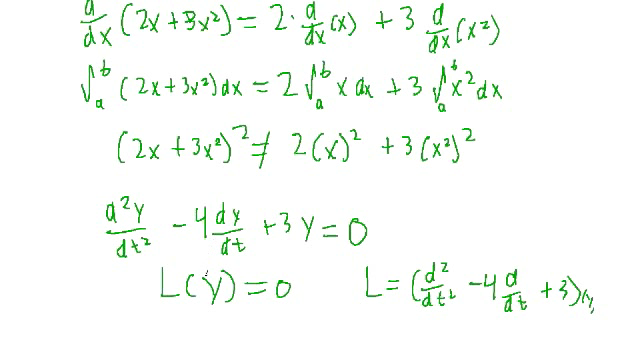 d/dx (2x + 3x²) = 2· d/dx (x) + 3 d/dx (x²)
∫ₐᵇ (2x + 3x²) dx = 2 ∫ₐᵇ x dx + 3 ∫ₐᵇ x² dx
(2x + 3x²)² ≠ 2(x)² + 3(x²)²
d²y/dt² − 4 dy/dt + 3y = 0
L(y) = 0    L = (d²/dt² − 4 d/dt + 3)